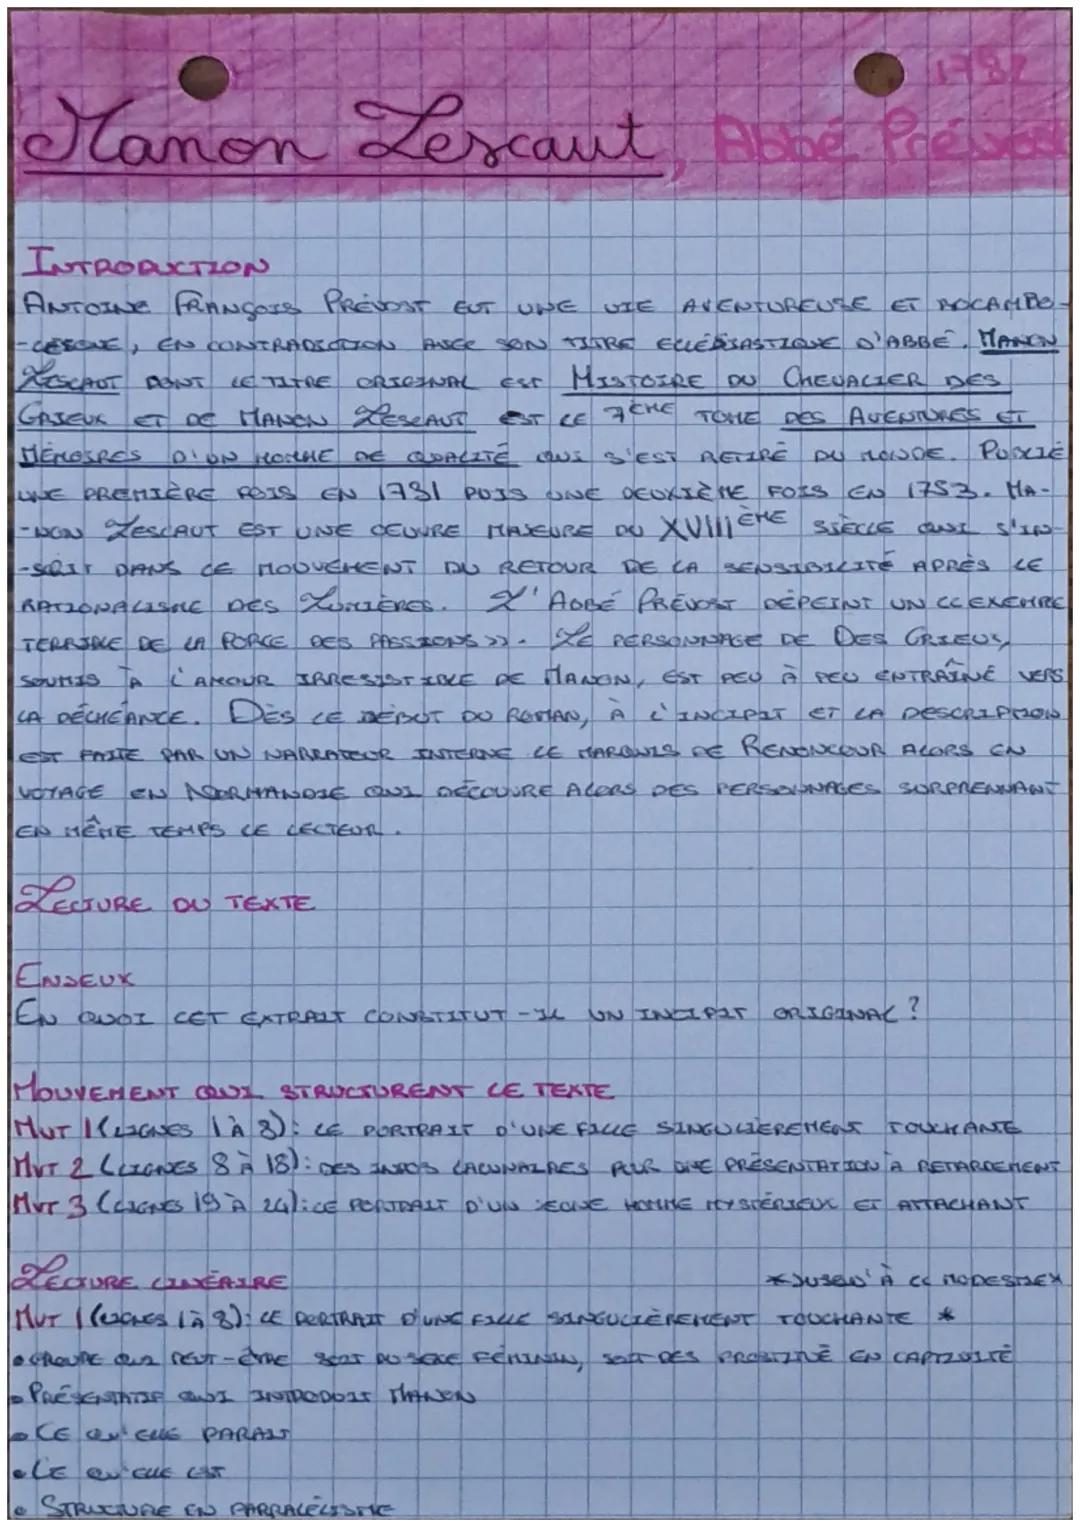 1731
Manon Lescaut, Abbé Prévost
INTRODUCTION
ANTOINE FRANÇOIS PRÉVOST EUT UNE VIE AVENTUREUSE ET ROCAMBO-
-LESQUE, EN CONTRADICTION AVEC SON TITRE ECLÉSIASTIQUE D'ABBÉ. MANON
LESCAUT DONT LE TITRE ORIGINAL EST HISTOIRE DU CHEVALIER DES
GRIEUX ET DE MANON LESCAUT EST LE 7ÈME TOME DES AVENTURES ET
MÉMOIRES D'UN HOMME DE QUALITÉ QUI S'EST RETIRÉ DU MONDE. PUBLIÉ
UNE PREMIÈRE FOIS EN 1731 PUIS UNE DEUXIÈME FOIS EN 1753. MA-
-NON LESCAUT EST UNE OEUVRE MAJEURE DU XVIIIÈME SIÈCLE QUI S'IN-
-SCRIT DANS LE MOUVEMENT DU RETOUR DE LA SENSIBILITÉ APRÈS LE
RATIONALISME DES LUMIÈRES. L'ABBÉ PRÉVOST DÉPEINT UN << EXEMPLE
TERRIBLE DE LA FORCE DES PASSIONS >>. LE PERSONNAGE DE DES GRIEUX,
SOUMIS À L'AMOUR IRRESISTIBLE DE MANON, EST PEU À PEU ENTRAÎNÉ VERS
LA DÉCHÉANCE. DÈS LE DÉBUT DU ROMAN, À L'INCIPIT ET LA DESCRIPTION
EST FAITE PAR UN NARRATEUR INTERNE LE MARQUIS DE RENONCOUR ALORS EN
VOYAGE EN NORMANDIE QUI DÉCOUVRE ALORS DES PERSONNAGES SURPRENNANT
EN MÊME TEMPS LE LECTEUR.
LECTURE DU TEXTE
ENJEUX
EN QUOI CET EXTRAIT CONSTITUT-IL UN INCIPIT ORIGINAL ?
MOUVEMENT QUI STRUCTURENT LE TEXTE
MVT 1 (LIGNES 1 À 8): LE PORTRAIT D'UNE FILLE SINGULIÈREMENT TOUCHANTE
MVT 2 (LIGNES 8 À 18): DES INFOS LACUNAIRES POUR UNE PRÉSENTATION À RETARDEMENT
MVT 3 (LIGNES 19 À 24): LE PORTRAIT D'UN JEUNE HOMME MYSTÉRIEUX ET ATTACHANT
LECTURE LINÉAIRE
*JUSQU'À << MODESTIE >>
MVT 1 (LIGNES 1 À 8): LE PORTRAIT D'UNE FILLE SINGULIÈREMENT TOUCHANTE *
• GROUPE QUI PEUT-ÊTRE SOIT DU SEXE FÉMININ, SOIT DES PROSTITUÉ EN CAPTIVITÉ
• PRÉSENTATIF QUI INTRODUIT MANON
• CE QU'ELLE PARAIT
• CE QU'ELLE EST
• STRUCTURE EN PARRALÉLISME